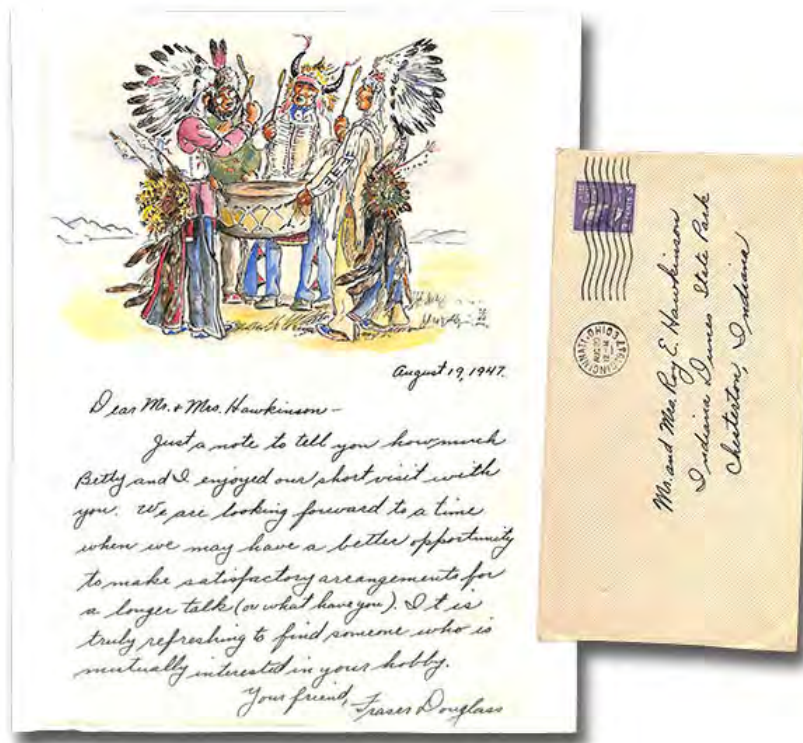 August 19, 1947.
Dear Mr. & Mrs. Hawkinson –
Just a note to tell you how much
Betty and I enjoyed our short visit with
you. We are looking forward to a time
when we may have a better opportunity
to make satisfactory arrangements for
a longer talk (or what have you). It is
truly refreshing to find someone who is
mutually interested in your hobby.
Your friend,
Fraser Douglass
CINCINNATI, OHIO
AUG 20
12 - M
1947
Mr. and Mrs. Roy E. Hawkinson
Indiana Dunes State Park
Chesterton, Indiana